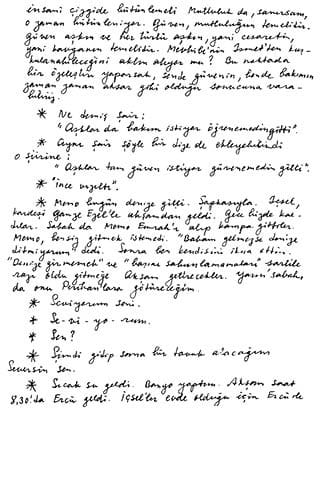 insanı çizgide bütünlemeli Mutluluk da, sanırsam,
o zaman bütünleniyor. Güven, mutluluğun temelidir.
güven aşkın ve her türlü aşkın, yani cesaretin,
yani kavganın temelidir. Mehlibe'nin İsmet'ten kuş-
kulanabileceğini aklın alıyor mu? Bu noktada
bir özeleştiri yaparsak, sende güvenin, bende bakımın
zaman zaman aksar gibi olduğu sonucuna vara-
biliriz.
* Ne demiş şair:
"Aşklar da bakım istiyor öğrenemedin gitti".
* Aynı şair şöyle bir dize de ekleyebilirdi
o şiirine:
"Aşklar tam güven istiyor güvenemedin gitti".
* "İnce sızıltı".
* Memo bugün denize gitti. Şapkasıyla. İçsel,
kardeşi Gamze Ezel'le akşamdan geldi. Gece bizde kal-
dılar. Sabah da Memo Emrah'ı alıp kampa gittiler.
Memo, bensiz gitmek istemedi. "Babam gelmezse denize
dedi. Sonra ben kendisini ikna ettim.
"Denize girmemek" ve "başına sahunlamamaları" şartile
razı oldu gitmeğe Akşam getirecekler. Yarın sabah,
da onu Perihan'lara götüreceğim.
* Seviyorum seni.
* Se-vi-yo-rum.
* Sen?
* Şimdi gidip sonra bir tavuk alacağım
Seversin sen.
* Sıcak su geldi. Banyo yaptım. Akşam saat
8,30'da Ercü geldi. İçsel'ler evde olduğu için Ercü'de